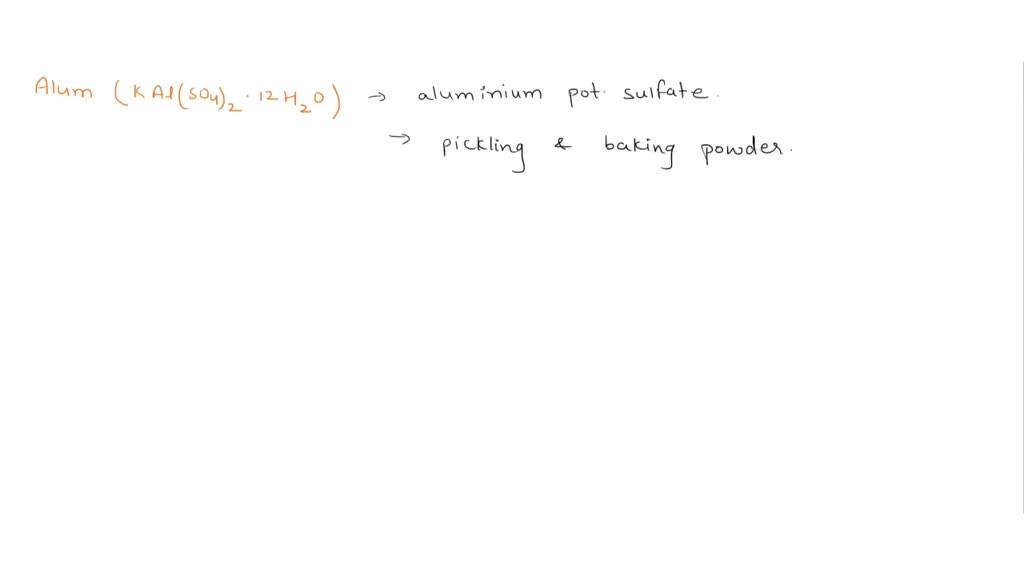 Alum (KAl(SO4)2 · 12H2O) → aluminium pot. sulfate.
→ pickling & baking powder.